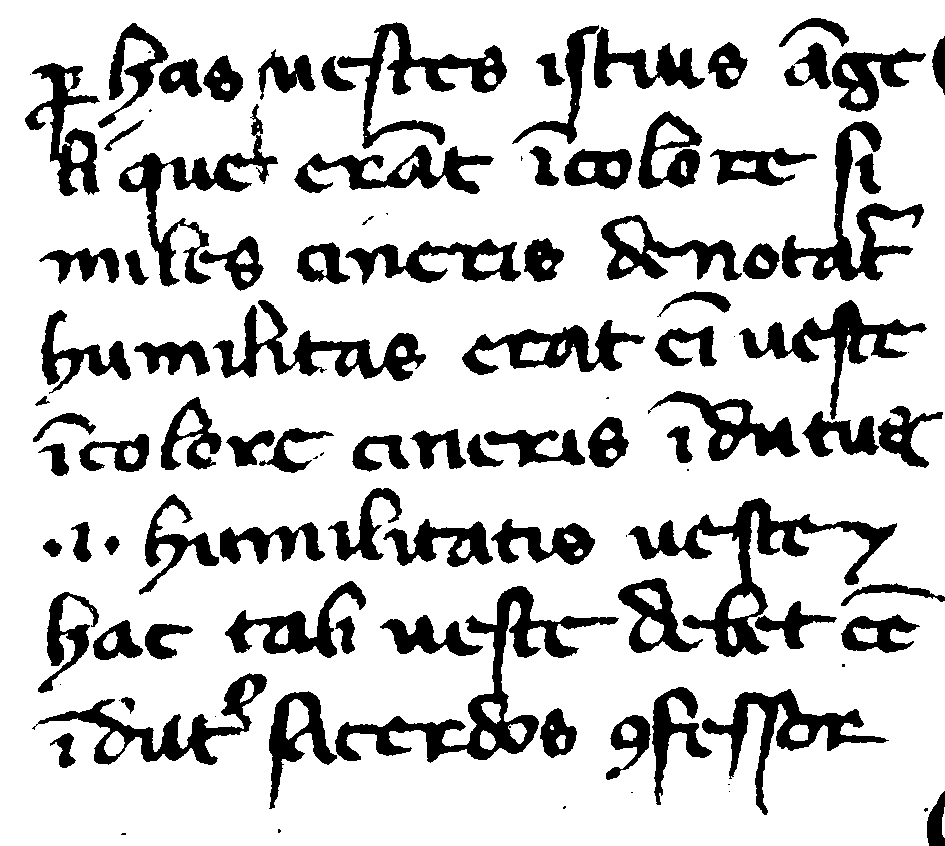 ꝑ has uestes istius āge
li que erāt ī colore si
miles cineris denotat᷑
humilitas erat ei̅ ueste
ī colore cineris īdutus
·i· humilitatis ueste ⁊
hac tali ueste debet ēe
īdutꝰ sacerdos ꝯfessor